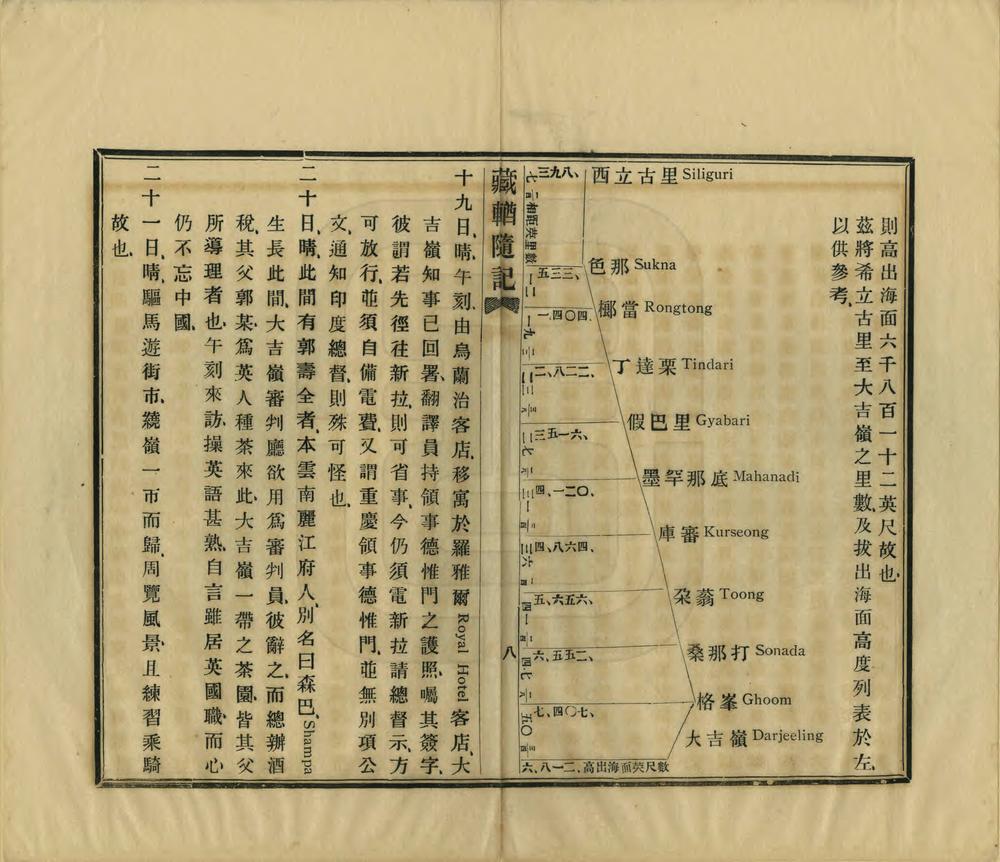 則高出海面六千八百一十二英尺故也、
茲將希立古里至大吉嶺之里數、及拔出海面高度列表於左、
以供參考、
西立古里 Siliguri
色那 Sukna
榔當 Rongtong
丁達栗 Tindari
假巴里 Gyabari
墨罕那底 Mahanadi
庫審 Kurseong
朶蓊 Toong
桑那打 Sonada
格峯 Ghoom
大吉嶺 Darjeeling
三九八、
五三三、
一、四〇四、
二、八二二、
三五一六、
四、一二〇、
四、八六四、
五、六五六、
六、五五二、
七、四〇七、
六、八一二、高出海面英尺數
相距英里數
藏輶隨記
八
十九日、晴、午刻、由烏蘭治客店、移寓於羅雅爾 Royal Hotel 客店、大
吉嶺知事已回署、翻譯員持領事德惟門之護照、囑其簽字、
彼謂若先徑往新拉、則可省事、今仍須電新拉請總督示、方
可放行、並須自備電費、又謂重慶領事德惟門、並無別項公
文、通知印度總督、則殊可怪也、
二十日、晴、此間有郭壽全者、本雲南麗江府人、別名曰森巴、Shampa
生長此間、大吉嶺審判廳欲用爲審判員、彼辭之、而總辦酒
稅、其父郭某、爲英人種茶來此、大吉嶺一帶之茶園、皆其父
所導理者也、午刻來訪、操英語甚熟、自言雖居英國職、而心
仍不忘中國、
二十一日、晴、驅馬遊街市、繞嶺一帀而歸、周覽風景、且練習乘騎
故也、